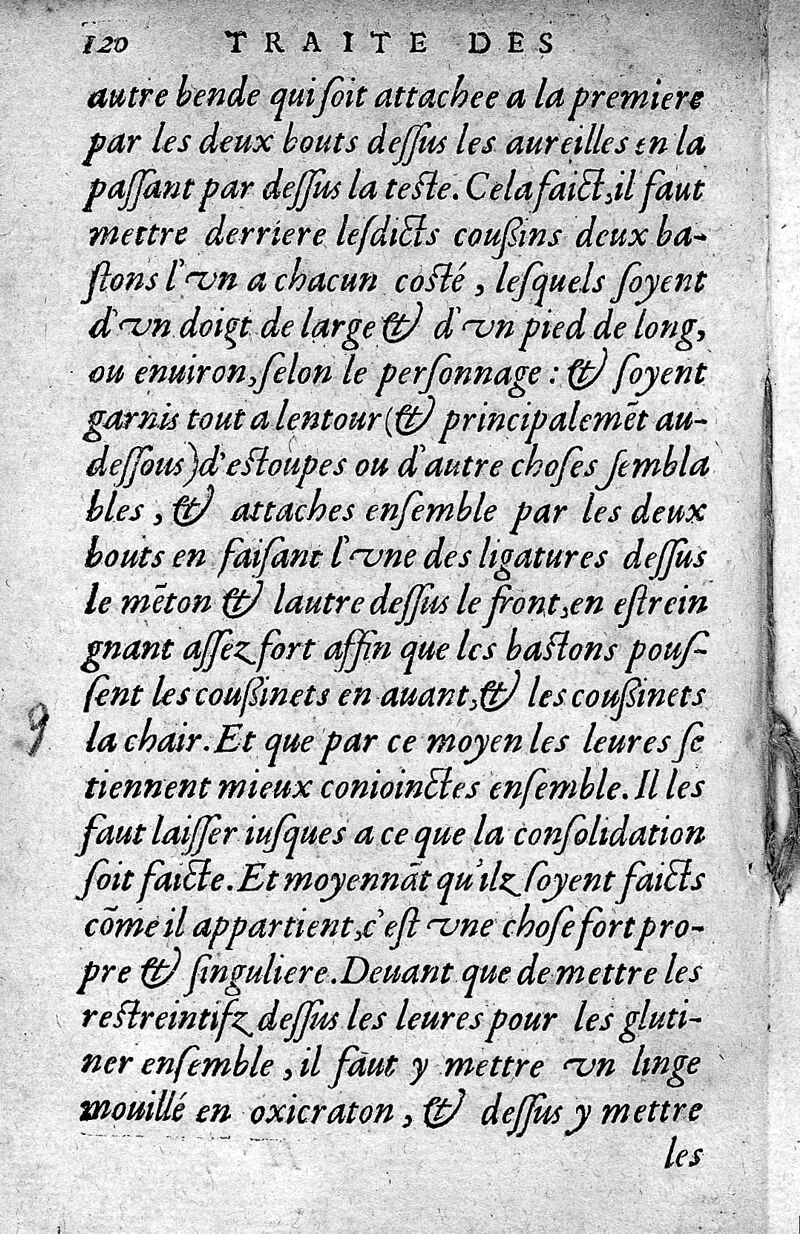 120 TRAITE DES
autre bende qui ſoit attachee a la premiere
par les deux bouts deſſus les aureilles en la
paſſant par deſſus la teſte. Cela faict, il faut
mettre derriere leſdicts coußins deux ba-
ſtons l'vn a chacun coſté, leſquels ſoyent
d'vn doigt de large & d'vn pied de long,
ou enuiron, ſelon le perſonnage : & ſoyent
garnis tout a lentour (& principalemẽt au-
deſſous) d'eſtoupes ou d'autre choſes ſembla
bles, & attaches enſemble par les deux
bouts en faiſant l'vne des ligatures deſſus
le mẽton & lautre deſſus le front, en eſtrein
gnant aſſez fort affin que les baſtons pouſ-
ſent les coußinets en auant, & les coußinets
la chair. Et que par ce moyen les leures ſe
tiennent mieux conioinctes enſemble. Il les
faut laiſſer iuſques a ce que la conſolidation
ſoit faicte. Et moyennãt qu'ilz ſoyent faicts
cõme il appartient, c'eſt vne choſe fort pro-
pre & ſinguliere. Deuant que de mettre les
reſtreintifz deſſus les leures pour les gluti-
ner enſemble, il faut y mettre vn linge
mouillé en oxicraton, & deſſus y mettre
les
9